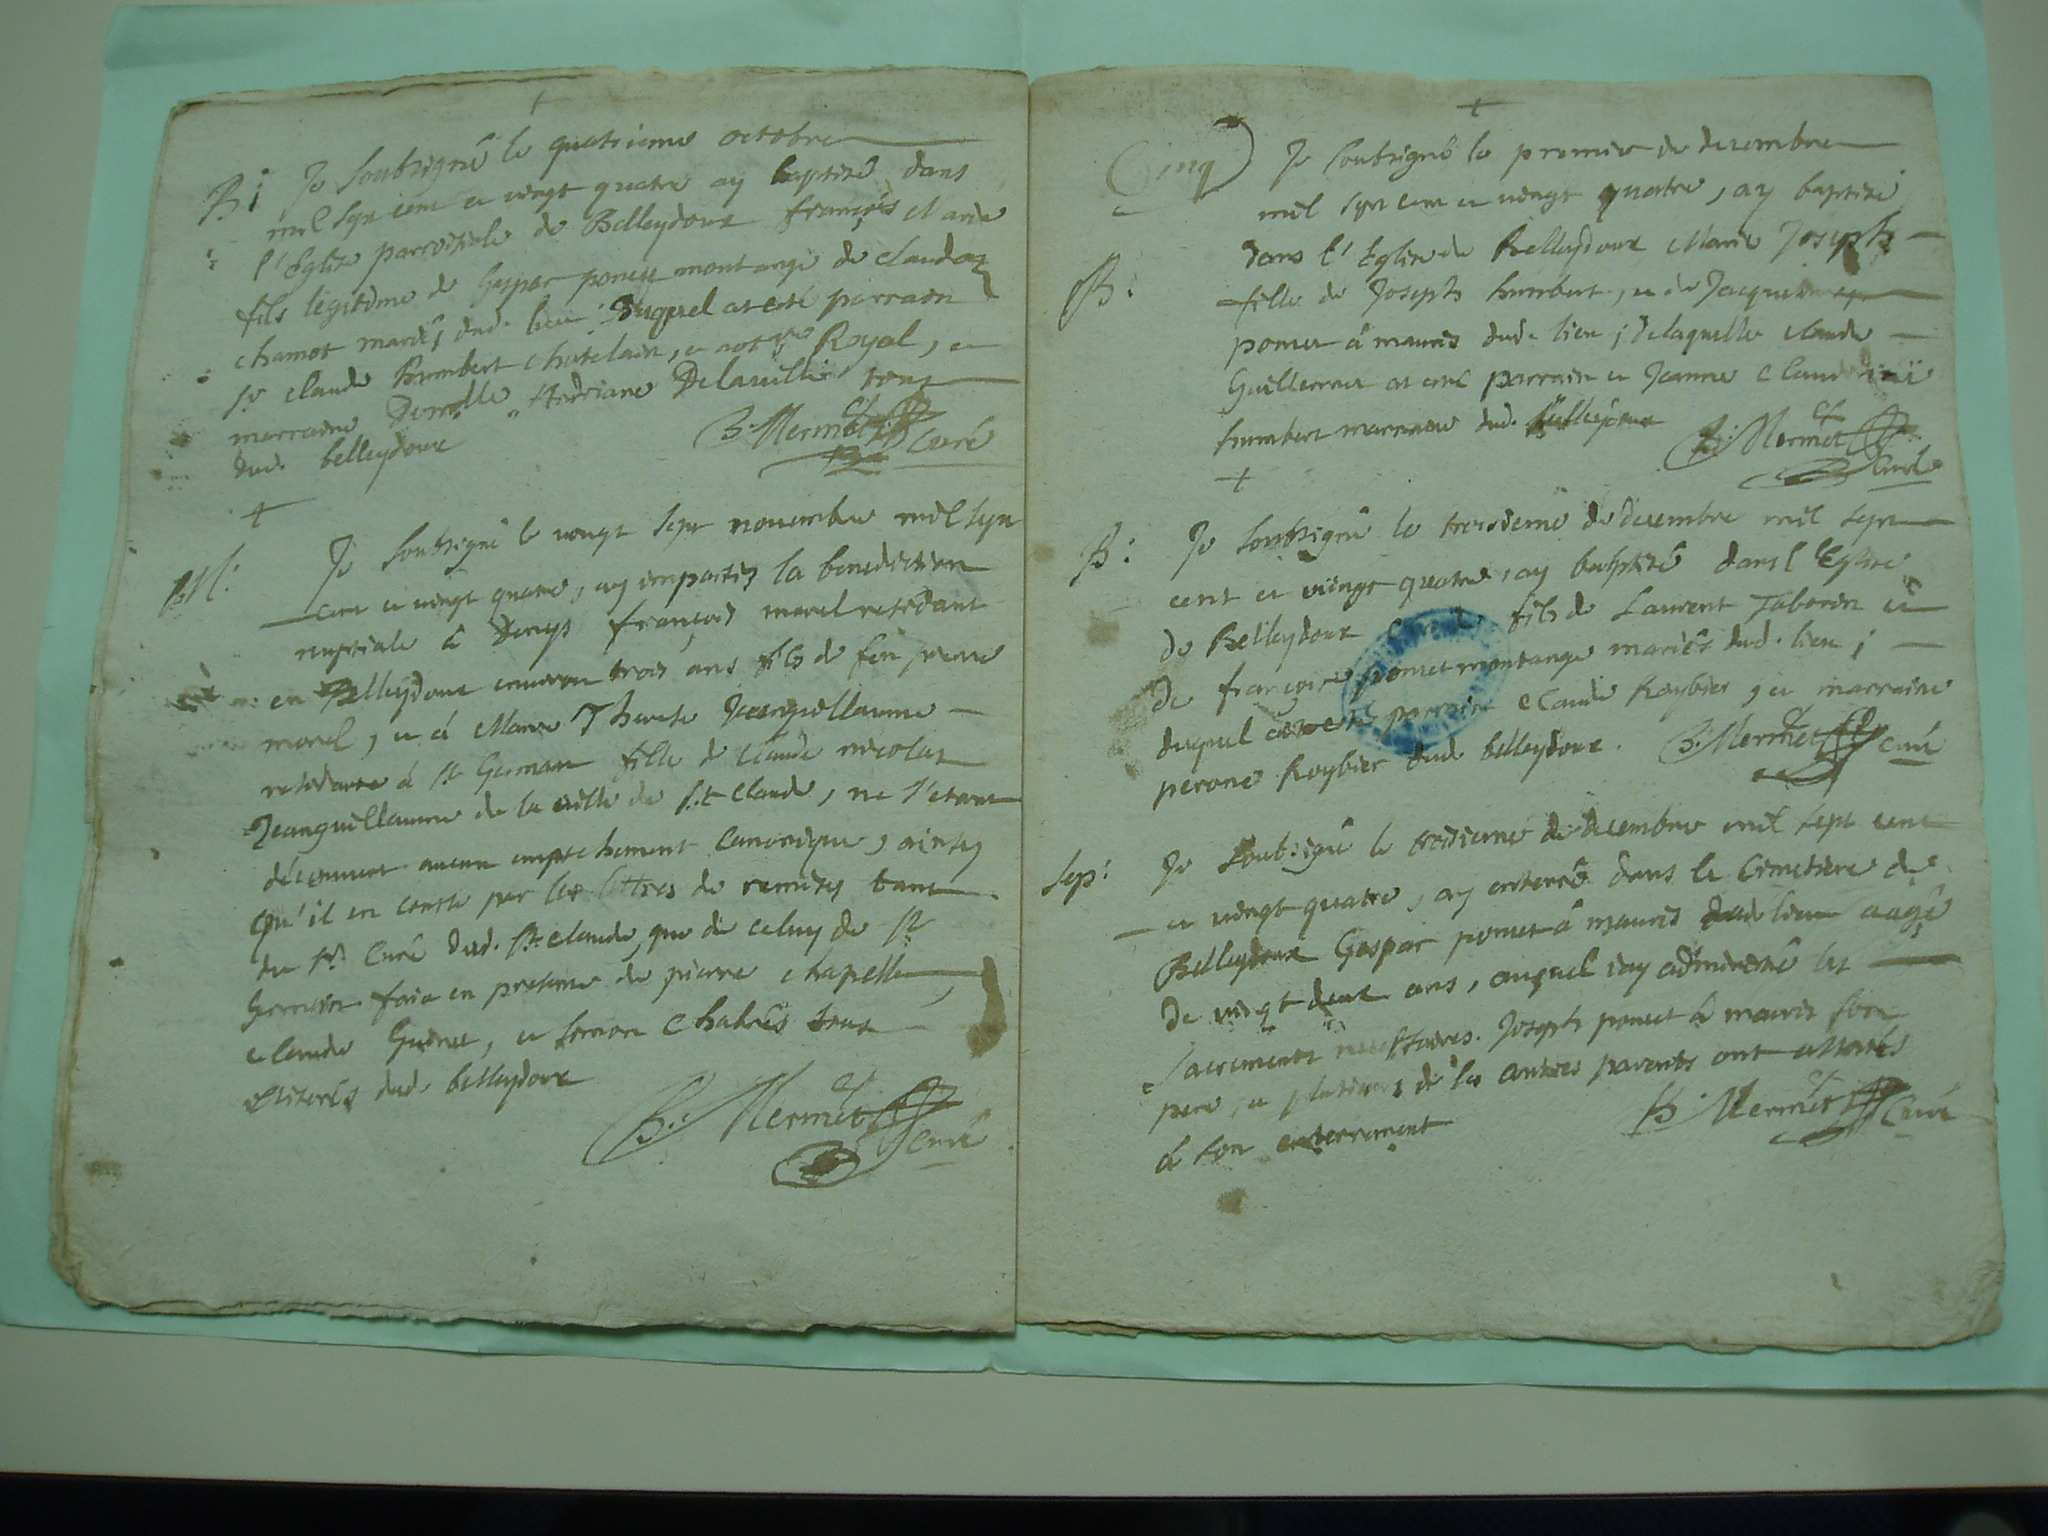 B: Je soubsigné le quatrieme octobre
mil sept cent et vingt quatre ay baptisé dans
l'Eglise parroissiale de Belleydoux françois
fils legitime de Gaspar poncet montange de claudaz
chamot mariés dud. lieu duquel at esté parrain
sr. claude humbert chatelain, et Royal, et
marraine Demlle Andriane Delaville tous
dud. belleydoux B. Mermet Curé
M: Je soubsigné le vingt sept novembre mil sept
cent et vingt quatre, ay imparties la benediction
nuptiale à Denys françois morel residant
en Belleydoux environ trois ans fils de feu pierre
morel, et à Marie Therese Jeanguillaume
residante à st German fille de claude nicolas
Jeanguillaume de la ville de st claude, ne s'etant
découvert aucun empechement Canonique, ainsy
qu'il en conste par les lettres de remises tant
du sr. Curé dud. St claude, que de celuy de st
Germain faict en presence de pierre chapelle
claude et simon tous
dud. belleydoux
B. Mermet Curé
Cinq
B: Je soubsigné le premier de decembre
mil sept cent et vingt quatre, ay baptisé
dans l'Eglise de Belleydoux Marie Joseph
fille de Joseph humbert, et de Jacquema
poncet à mauris dud. lieu, de laquelle claude
Guillermet at esté parrain et Jeanne Claudine
humbert marraine dud. belleydoux B. Mermet
Curé
B: Je soubsigné le troisieme de decembre mil sept
cent et vingt quatre, ay baptisé dans l'Eglise
de Belleydoux fils de Laurent Taborin et
de françoise poncet montange mariés dud. lieu;
duquel at esté parrain Claude Roybier, et marraine
perone Roybier dud. belleydoux. B. Mermet Curé
Sep: Je soubsigné le troisieme de decembre mil sept cent
et vingt quatre, ay enterré dans le Cimetiere de
Belleydoux Gaspar poncet à mauris dud. lieu aagé
de vingt deux ans, auquel iay administré les
sacrements necessaires. Joseph poncet à mauris son
pere, et plusieurs de ses autres parents ont assistés
à son enterrement B. Mermet Curé